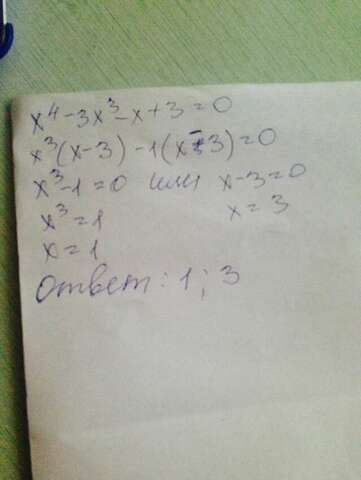 x⁴-3x³-x+3=0
x³(x-3)-1(x-3)=0
x³-1=0 или x-3=0
x³=1 x=3
x=1
Ответ: 1; 3